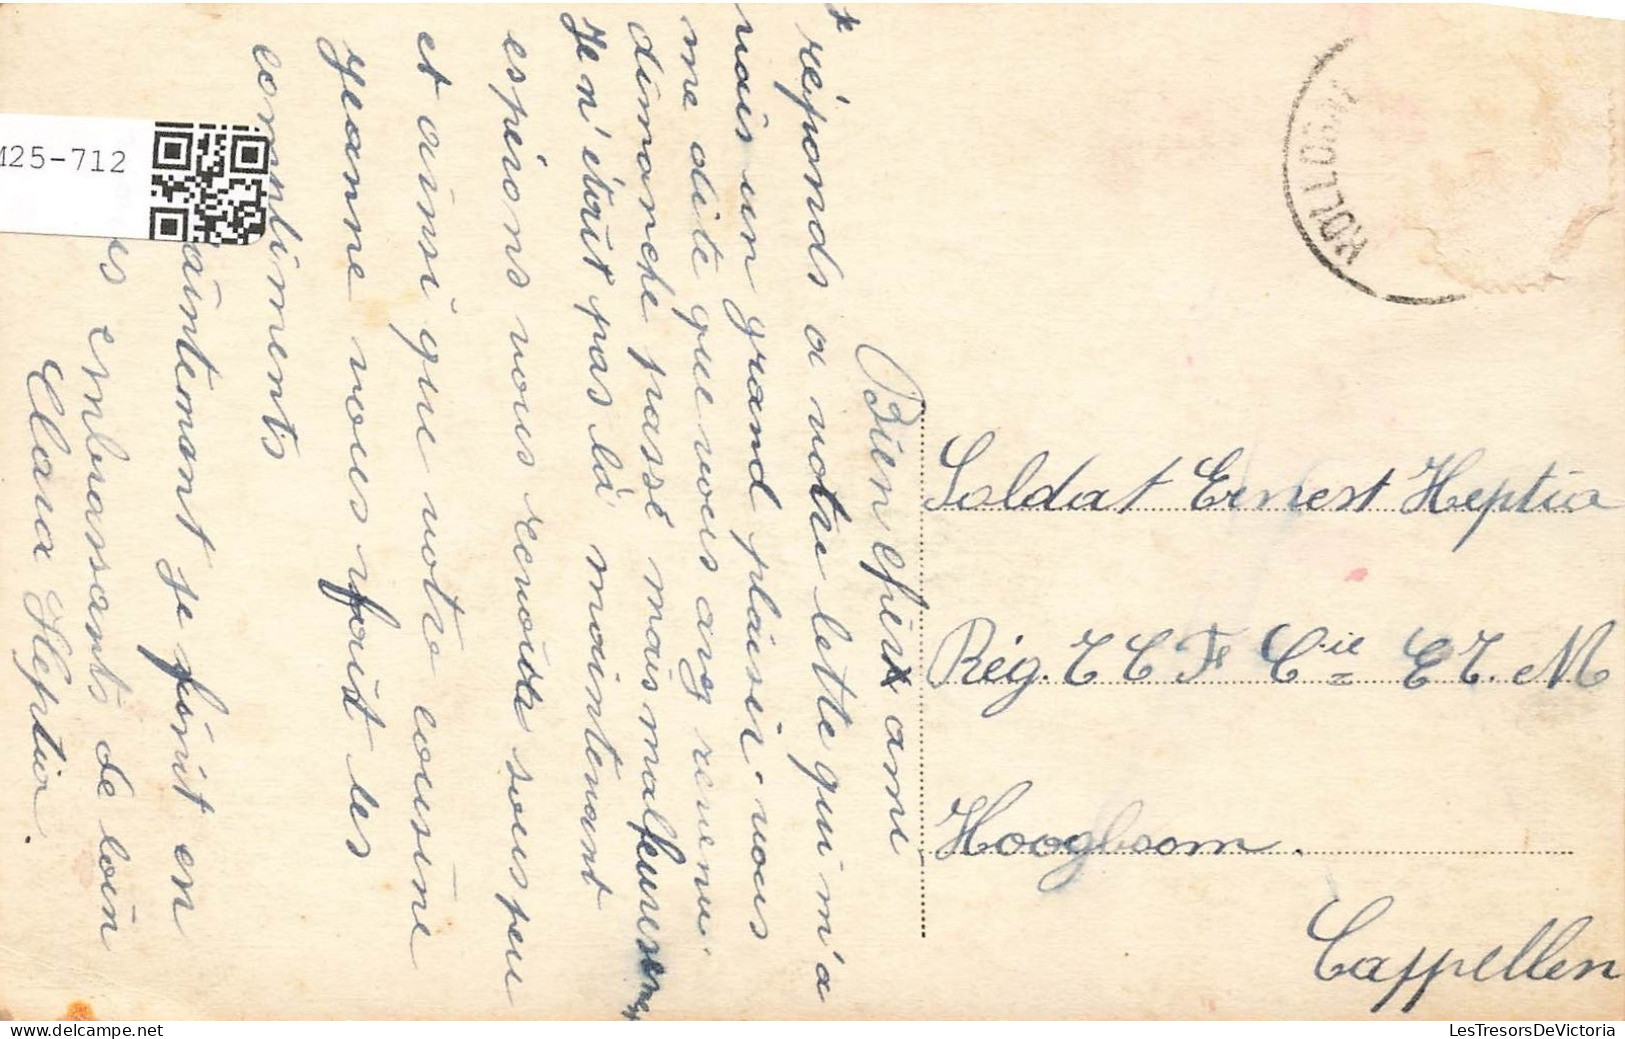 Bien cher ami
réponds a votre lette qui m'a
vais un grand plaisir. vous
me dite que vous avez revenu
dimanche passé mais malheureusement
Je n'était pas là maintenant
espérons vous revoir sous peu
et ainsi que votre cousine
Jeanne vous fait les
compliments
maintemant je finit en
embrassants de loin
Clara Heptia.
Soldat Ernest Heptia
Rég. T C F Cie E T. M
Hoogboom.
Cappellen
M25-712
LesTresorsDeVictoria